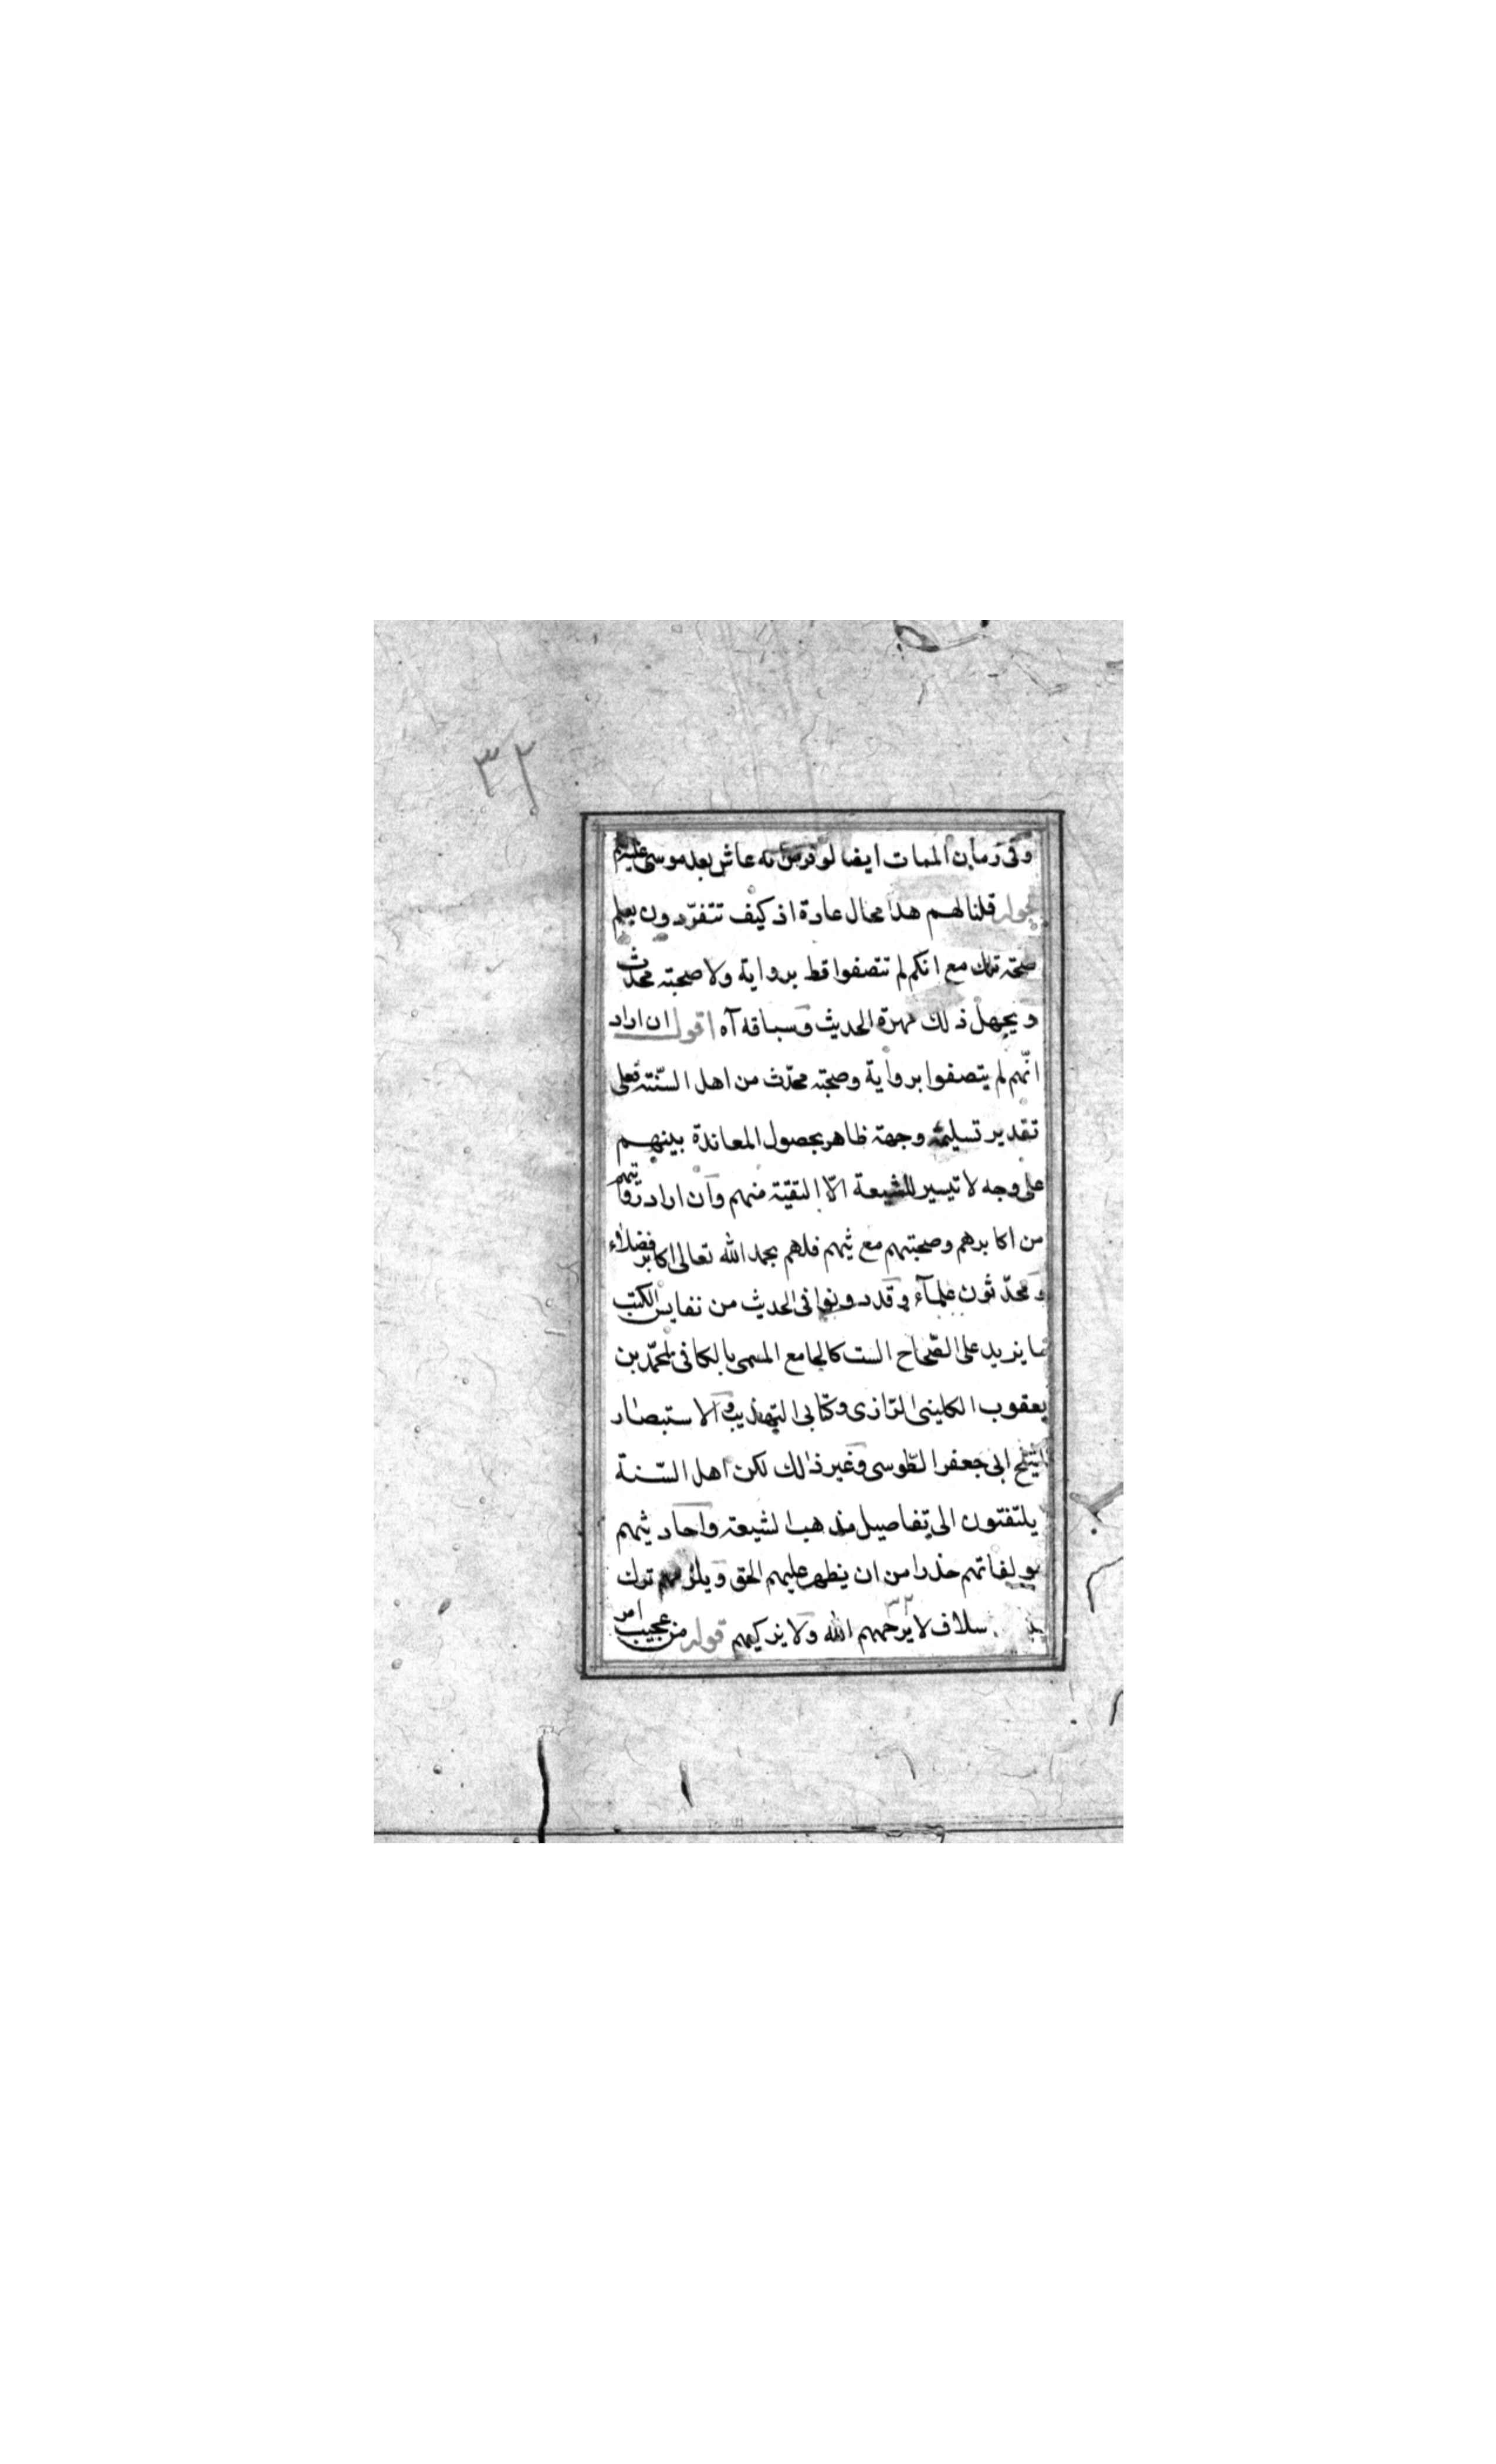 ٣٢
وفى زمان الممات ايضا لو فرض انه عاش بعد موسى عليهم
قوله قلنا لهم هذا محال عادة اذ كيف تتفرّدون بعلم
صحته تلك مع انكم لم تتصفوا قط برواية ولا صحبته محدث
ويجهل ذلك مهرة الحديث وسباقه آه اقول ان اراد
انّهم لم يتصفوا برواية وصحبته محدّث من اهل السّنّته فعلى
تقدير تسليمه وجهة ظاهر بحصول المعاندة بينهم
على وجه لا تيسير للشيعة الّا التقيّة منهم وان اراد روايتهم
من اكابرهم وصحبتهم مع فلهم بحمد الله تعالى اكابر فضلاء
و محدّثون علمآء وقد دونوا فى الحديث من نفايس الكتب
ما يزيد على الصّحاح الست كالجامع المسمى بالكافى لمحمّد بن
يعقوب الكلينى الرّازى وكتابى التهذيب والاستبصار
للشيخ ابى جعفر الطّوسى وغير ذلك لكن اهل السّنة
يلتفتون الى تفاصيل مذهب الشيعة واحاديثهم
ومولفاتهم حذرا من ان يظهر عليهم الحق ويلزمهم ترك
سلاف لا يرحمهم الله ولا يزكيهم قوله من عجيب امر
٣٢